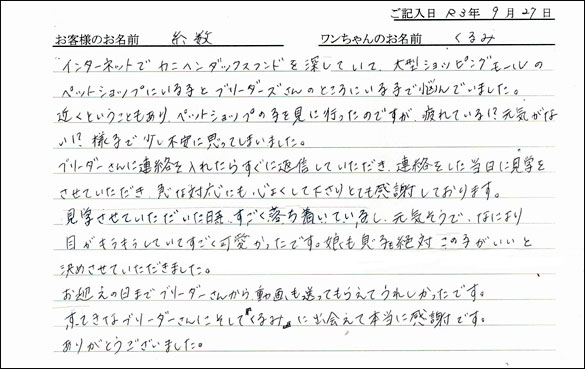 ご記入日 R3年 9月27日
お客様のお名前 糸数 ワンちゃんのお名前 くるみ
インターネットでカニヘンダックスフンドを探していて、大型ショッピングモールの
ペットショップにいる子とブリーダーズさんのところにいる子で悩んでいました。
近くということもあり、ペットショップの子を見に行ったのですが、疲れている!?元気がな
い!?様子で少し不安に思ってしまいました。
ブリーダーさんに連絡を入れたらすぐに返信していただき、連絡をした当日に見学を
させていただき、急な対応にも心よくして下さりとても感謝しております。
見学させていただいた時、すごく落ち着いているし、元気そうで、なにより
目がキラキラしていてすごく可愛かったです。娘も息子も絶対この子がいいと
決めさせていただきました。
お迎えの日までブリーダーさんから動画も送ってもらえてうれしかったです。
すてきなブリーダーさんにそして"くるみ"に出会えて本当に感謝です。
ありがとうございました。